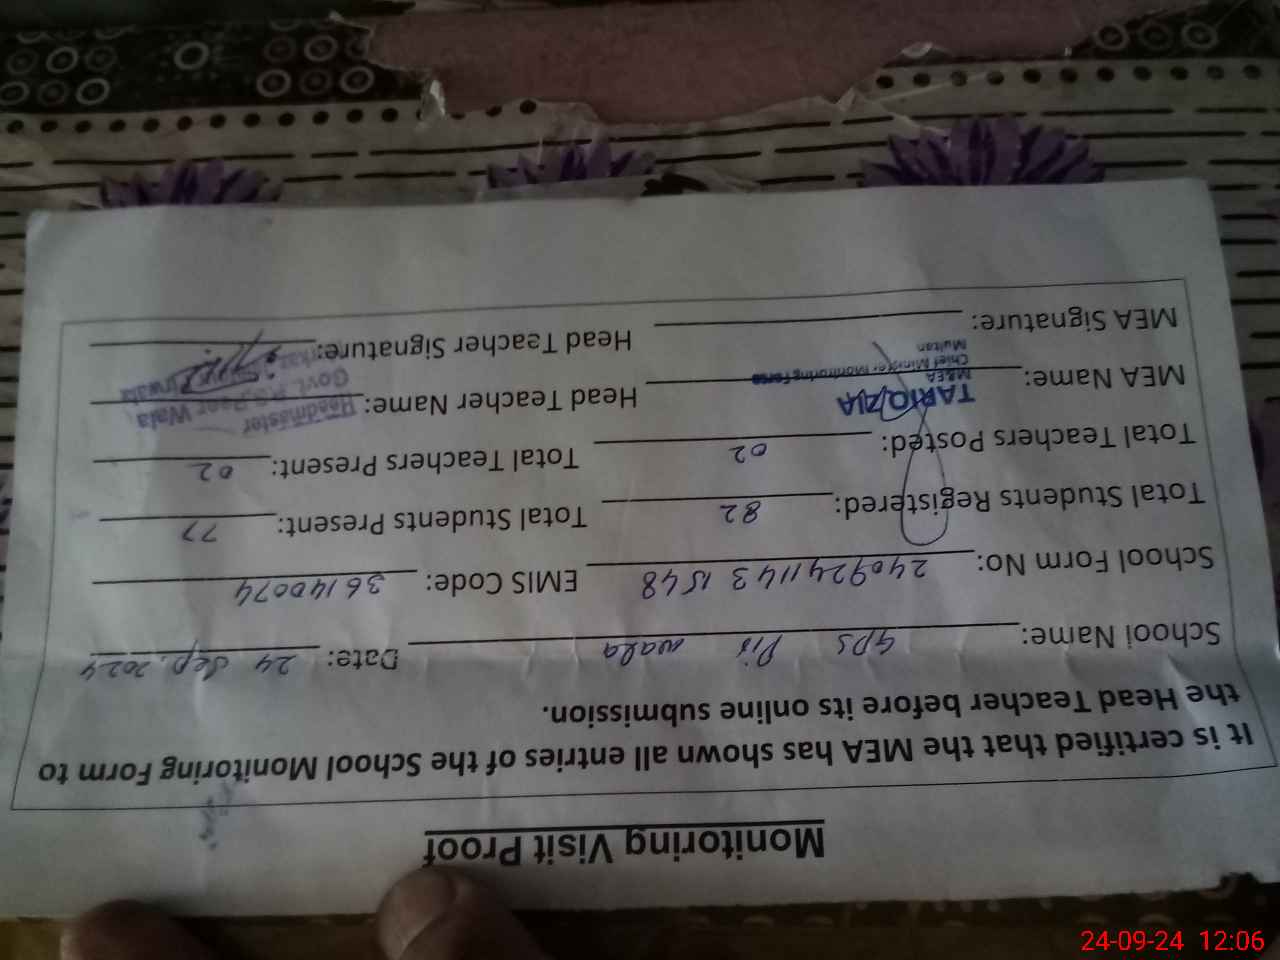 Monitoring Visit Proof
It is certified that the MEA has shown all entries of the School Monitoring Form to
the Head Teacher before its online submission.
School Name: GPS Pir wala Date: 24 Sep, 2024
School Form No: 240924 1143 1548 EMIS Code: 36140074
Total Students Registered: 82 Total Students Present: 77
Total Teachers Posted: 02 Total Teachers Present: 02
MEA Name: TARIQ ZIA Head Teacher Name: Headmaster
M&EA Govt. P/S Wala
Chief Minister Monitoring Force
Multan
MEA Signature: Head Teacher Signature:
24-09-24 12:06